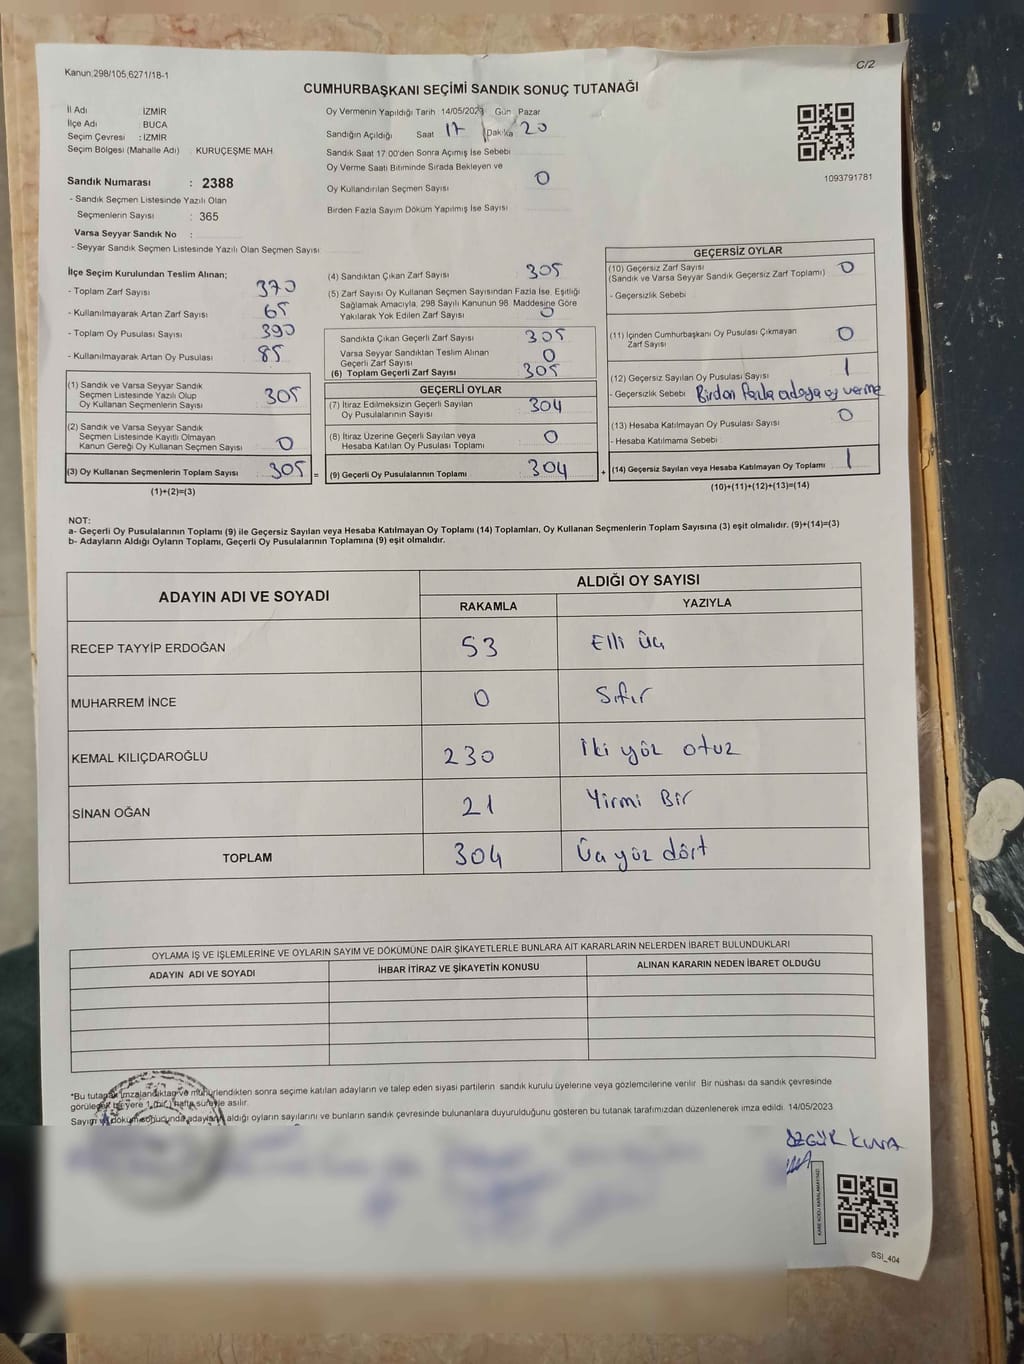 Kanun;298/105,6271/18-1
C/2
CUMHURBAŞKANI SEÇİMİ SANDIK SONUÇ TUTANAĞI
İl Adı İZMİR
İlçe Adı BUCA
Seçim Çevresi : İZMİR
Seçim Bölgesi (Mahalle Adı) KURUÇEŞME MAH.
Sandık Numarası : 2388
- Sandık Seçmen Listesinde Yazılı Olan
Seçmenlerin Sayısı : 365
Varsa Seyyar Sandık No :
- Seyyar Sandık Seçmen Listesinde Yazılı Olan Seçmen Sayısı
Oy Vermenin Yapıldığı Tarih 14/05/2023 Gün Pazar
Sandığın Açıldığı Saat 17 Dakika 20
Sandık Saat 17:00'den Sonra Açımış İse Sebebi
Oy Verme Saati Bitiminde Sırada Bekleyen ve
Oy Kullandırılan Seçmen Sayısı 0
Birden Fazla Sayım Döküm Yapılmış İse Sayısı
1093791781
İlçe Seçim Kurulundan Teslim Alınan;
- Toplam Zarf Sayısı 370
- Kullanılmayarak Artan Zarf Sayısı 65
- Toplam Oy Pusulası Sayısı 390
- Kullanılmayarak Artan Oy Pusulası 85
(1) Sandık ve Varsa Seyyar Sandık
Seçmen Listesinde Yazılı Olup
Oy Kullanan Seçmenlerin Sayısı 305
(2) Sandık ve Varsa Seyyar Sandık
Seçmen Listesinde Kayıtlı Olmayan
Kanun Gereği Oy Kullanan Seçmen Sayısı 0
(3) Oy Kullanan Seçmenlerin Toplam Sayısı 305 =
(1)+(2)=(3)
(4) Sandıktan Çıkan Zarf Sayısı 305
(5) Zarf Sayısı Oy Kullanan Seçmen Sayısından Fazla İse, Eşitliği
Sağlamak Amacıyla, 298 Sayılı Kanunun 98. Maddesine Göre
Yakılarak Yok Edilen Zarf Sayısı 0
Sandıkta Çıkan Geçerli Zarf Sayısı 305
Varsa Seyyar Sandıktan Teslim Alınan
Geçerli Zarf Sayısı 0
(6) Toplam Geçerli Zarf Sayısı 305
GEÇERLİ OYLAR
(7) İtiraz Edilmeksizin Geçerli Sayılan
Oy Pusulalarının Sayısı 304
(8) İtiraz Üzerine Geçerli Sayılan veya
Hesaba Katılan Oy Pusulası Toplamı 0
(9) Geçerli Oy Pusulalarının Toplamı 304 +
GEÇERSİZ OYLAR
(10) Geçersiz Zarf Sayısı
(Sandık ve Varsa Seyyar Sandık Geçersiz Zarf Toplamı) 0
- Geçersizlik Sebebi
(11) İçinden Cumhurbaşkanı Oy Pusulası Çıkmayan
Zarf Sayısı 0
(12) Geçersiz Sayılan Oy Pusulası Sayısı 1
- Geçersizlik Sebebi Birden fazla adaya oy verme
(13) Hesaba Katılmayan Oy Pusulası Sayısı 0
- Hesaba Katılmama Sebebi
(14) Geçersiz Sayılan veya Hesaba Katılmayan Oy Toplamı 1
(10)+(11)+(12)+(13)=(14)
NOT:
a- Geçerli Oy Pusulalarının Toplamı (9) ile Geçersiz Sayılan veya Hesaba Katılmayan Oy Toplamı (14) Toplamları, Oy Kullanan Seçmenlerin Toplam Sayısına (3) eşit olmalıdır. (9)+(14)=(3)
b- Adayların Aldığı Oyların Toplamı, Geçerli Oy Pusulalarının Toplamına (9) eşit olmalıdır.
ADAYIN ADI VE SOYADI
ALDIĞI OY SAYISI
RAKAMLA YAZIYLA
RECEP TAYYİP ERDOĞAN 53 Elli üç
MUHARREM İNCE 0 Sıfır
KEMAL KILIÇDAROĞLU 230 İki yüz otuz
SİNAN OĞAN 21 Yirmi Bir
TOPLAM 304 Üç yüz dört
OYLAMA İŞ VE İŞLEMLERİNE VE OYLARIN SAYIM VE DÖKÜMÜNE DAİR ŞİKAYETLERLE BUNLARA AİT KARARLARIN NELERDEN İBARET BULUNDUKLARI
ADAYIN ADI VE SOYADI İHBAR İTİRAZ VE ŞİKAYETİN KONUSU ALINAN KARARIN NEDEN İBARET OLDUĞU
*Bu tutanak imzalandıktan ve mühürlendikten sonra seçime katılan adayların ve talep eden siyasi partilerin sandık kurulu üyelerine veya gözlemcilerine verilir. Bir nüshası da sandık çevresinde
görülecek bir yere 1 (bir) hafta süreyle asılır.
Sayım ve döküm sonucunda adayların aldığı oyların sayılarını ve bunların sandık çevresinde bulunanlara duyurulduğunu gösteren bu tutanak tarafımızdan düzenlenerek imza edildi. 14/05/2023
ÖZGÜR KUVA
SSI_404